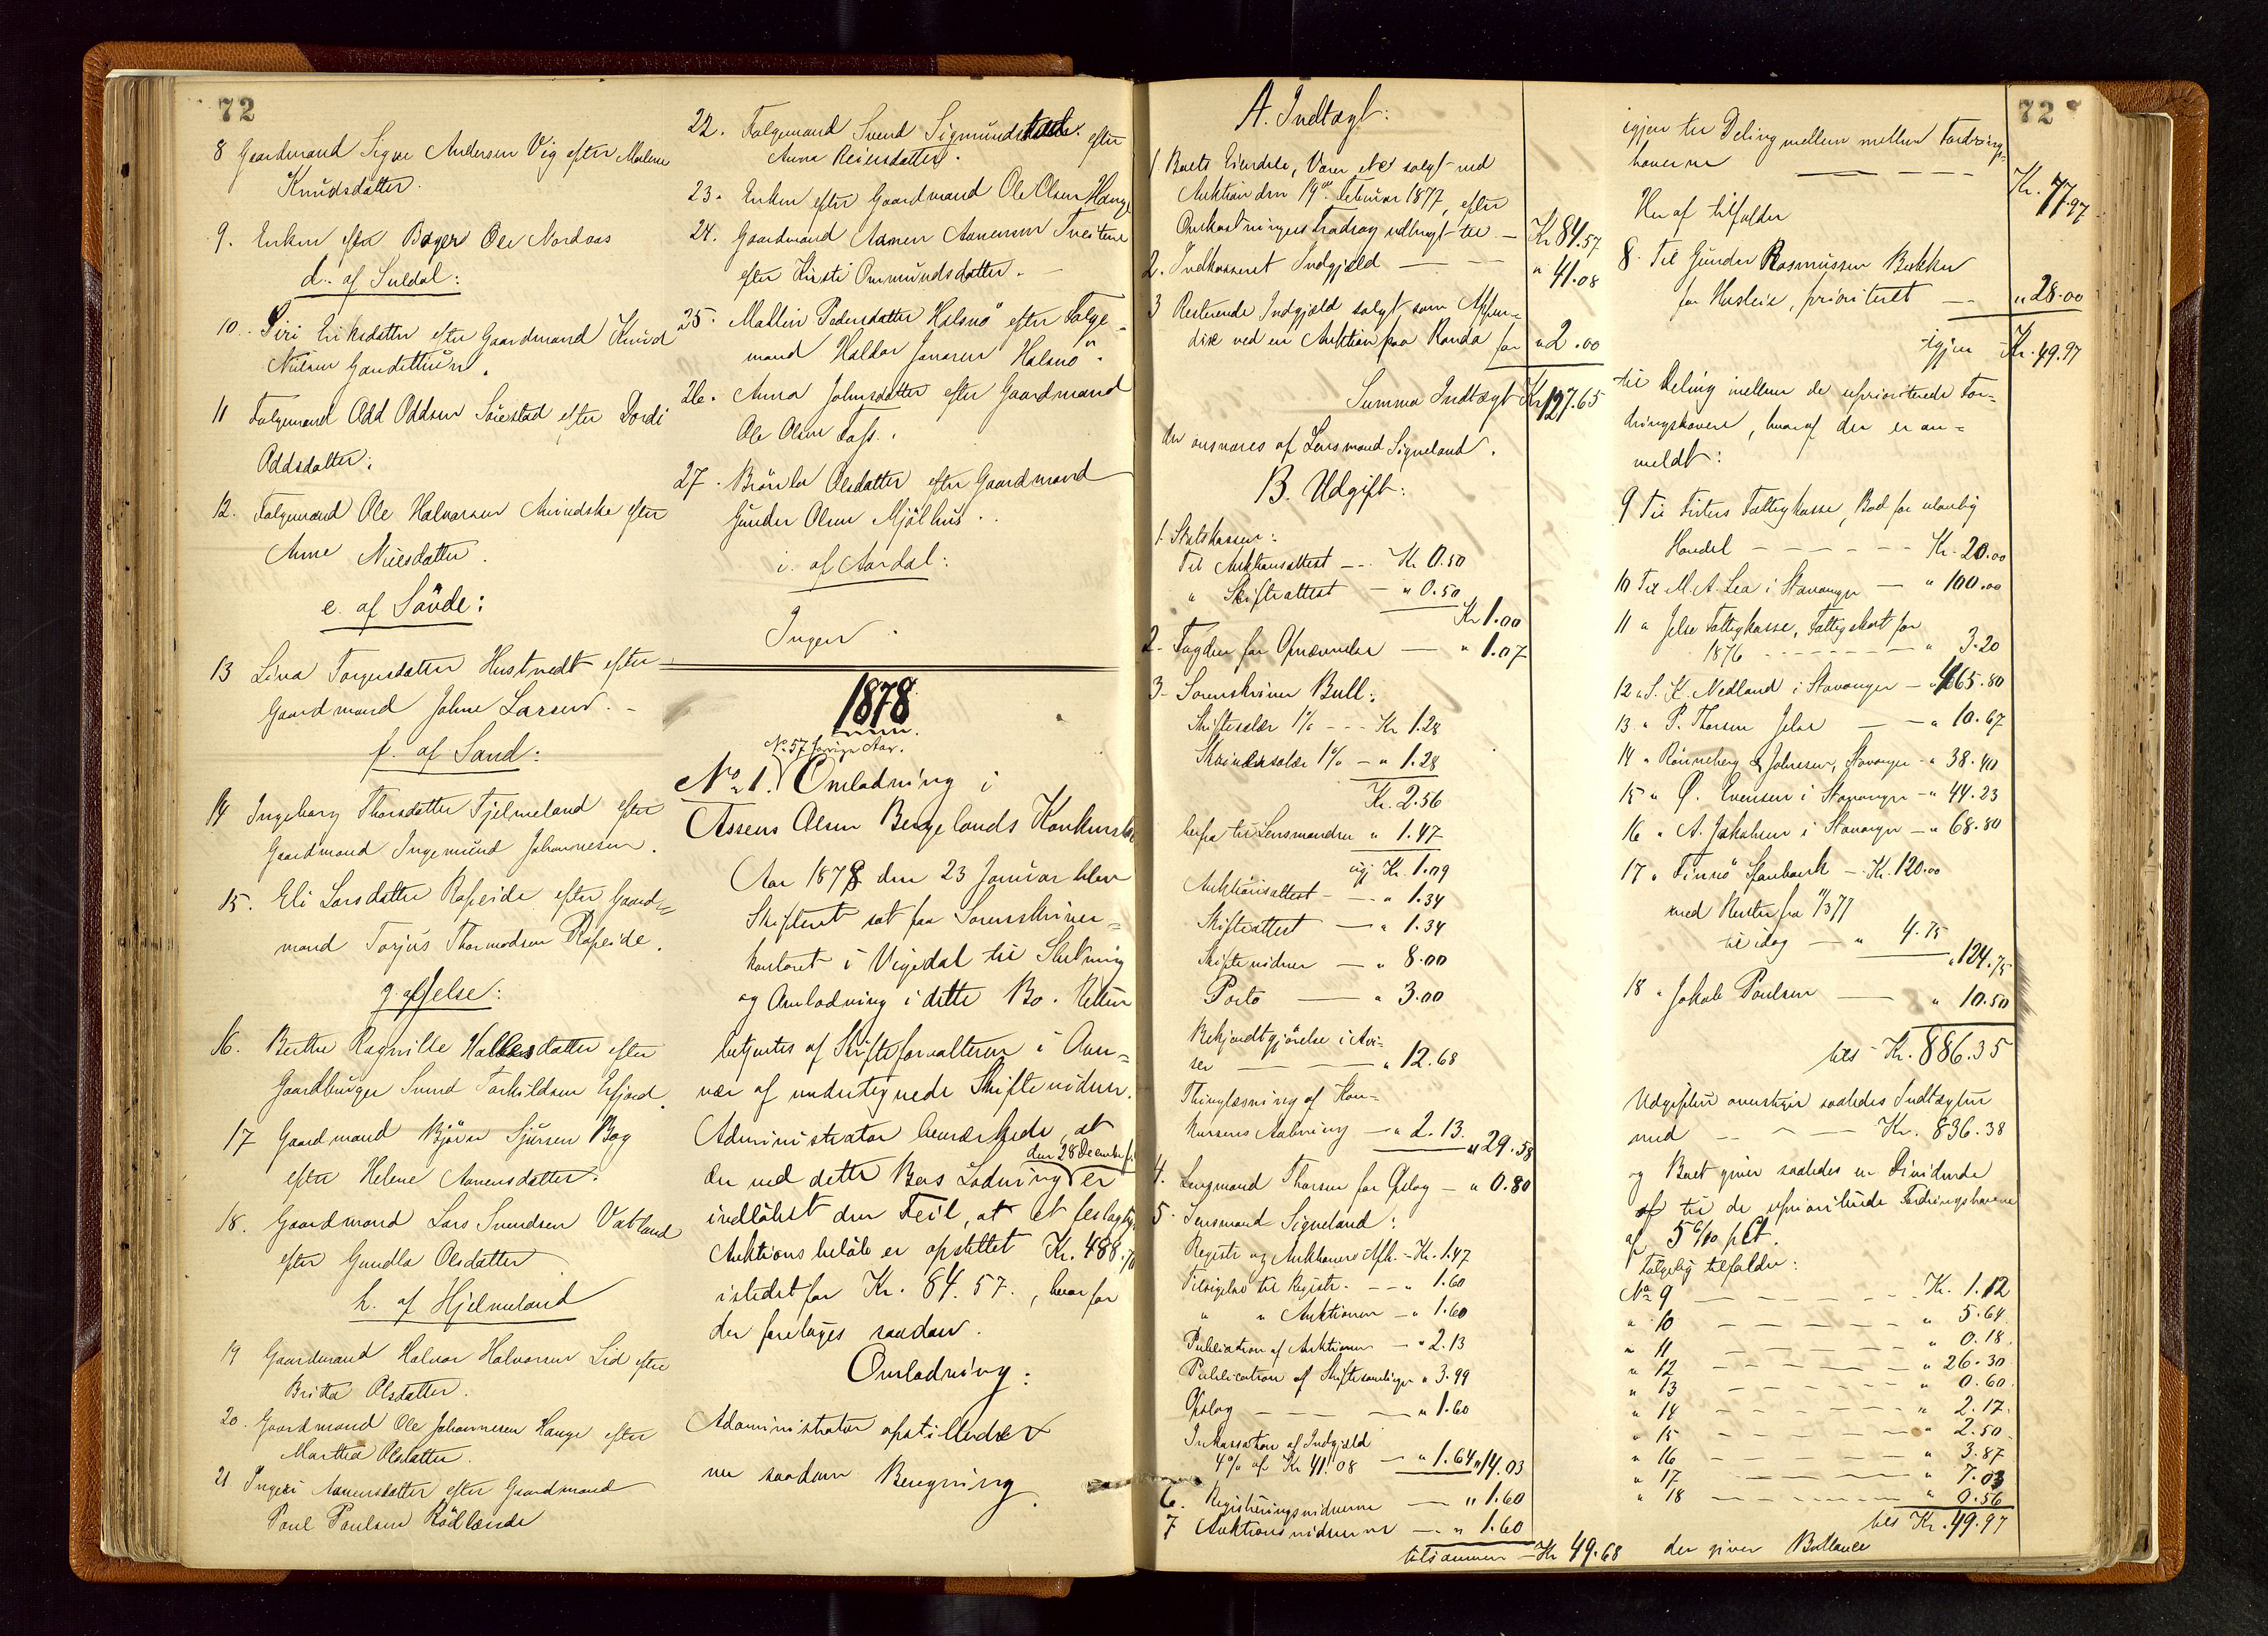 72
8 Gaardmand Sigve Andersen Vig efter Malene
Knudsdatter.
9. Enken efter Bager Ole Nordaas
d. af Suldal:
10. Siri Eriksdatter efter Gaardmand Knud
Nielsen
11 Folgemand Odd Oddsen efter Dordi
Oddsdatter.
12. Folgemand Ole Halvorsen efter
Anne Nielsdatter.
e. af Søvde:
13 Lina Torgersdatter Hustvedt efter
Gaardmand Johne Larsen.
f. af Sand:
14 Ingeborg Thorsdatter Tjelmeland efter
Gaardmand Ingemund Johannesen.
15. Eli Larsdatter Ropeide efter Gaard=
mand Torjus Thormodsen Ropeide.
g. af Jelse:
16. Berthe Ragnille Hallesdatter efter
Gaardbruger Svend Torkildsen Erfjord.
17 Gaardmand Bjørn Sjursen Bog
efter Helene Aanensdatter.
18. Gaardmand Lars Svendsen Vatland
efter Gundla Olsdatter
h. af Hjelmeland
19 Gaardmand Halvor Halvorsen Lid efter
Britha Olsdatter.
20. Gaardmand Ole Johannesen Hauge efter
Martha Olsdatter.
21 Ingeri Aanensdatter efter Gaardmand
Poul Poulsen Rødlænde
22. Folgemand Svend Sigmundstad efter
Anna Reiersdatter.
23. Enken efter Gaardmand Ole Olsen Hauge
24. Gaardmand Aanen Aanensen Tveitene
efter Kirsti Ommundsdatter.
25. Mallin Pedersdatter Halsnø efter Folge=
mand Haldor Jonasen Halsnø.
26. Anna Johnsdatter efter Gaardmand
Ole Olsen Foss.
27. Brønla Olsdatter efter Gaardmand
Gunder Olsen Mjølhus.
i. af Aardal:
Ingen.
1878.
No 57 forrige Aar.
No 1. Omlodning i
Assens Olsen Bergelands Konkursbo
Aar 1878 den 23 Januar blev
Skifteret sat paa Sorenskriver=
kontoret i Vigedal til Slutning
og Omlodning i dette Bo. Retten
betjentes af Skifteforvalteren i Over=
vær af undertegnede Skiftevidner.
Administrator bemærkede, at
den 28 December f.
der ved dette Bos Lodning er
indløbet den Feil, at et
Auktionsbeløb er opstillet Kr. 488.70
istedetfor Kr. 84.57., hvorfor
der foretages saadan.
Omlodning:
Administrator opstillede
nu saadan Beregning.
A. Indtægt:
1. Boets Eiendele, Varer etc solgt ved
Auktion den 19de Februar 1877, efter
Omkostningers Fradrag udbragt til — Kr 84.57
2. Indkasseret Indgjæld — — — " 41.08
3 Resterende Indgjæld solgt som Appen=
dix ved en Auktion paa Randa for " 2.00
Summa Indtægt Kr 127.65
der ansvares af Lensmand Signeland.
B. Udgift:
1. Statskassen:
Til Auktionsattest — Kr 0.50
" Skifteattest — " 0.50
Kr 1.00
2. Fogden for Opnævnelse — " 1.07
3. Sorenskriver Bull:
Skiftesalær 1% — Kr 1.28
Skriversalær 1% — " 1.28
Kr. 2.56
herfra til Lensmanden " 1.47
igj Kr. 1.09
Auktionsattest — " 1.34
Skifteattest — " 1.34
Skiftevidner — " 8.00
Porto — " 3.00
Bekjendtgjørelse i Avi=
ser — — " 12.68
Thinglæsning af Kon=
kursens Aabning — " 2.13.
" 29.58
4. Lensmand Thorsen for Opslag — " 0.80
5. Lensmand Signeland:
Registr. og Auktions Afh. — Kr. 1.47
Tilsigelse til Registr. — " 1.60
" " Auktionen — " 1.60
Publication af Auktionen — " 2.13
Publication af Skiftesamlinger " 3.99
Opslag — — " 1.60
Inkassation af Indgjæld
4% af Kr 41.08 — " 1.64 " 14.03
6. Registreringsvidnerne — " 1.60
7 Auktionsvidnerne — " 1.60
tilsammen — Kr 49.68
72
igjen til Deling mellem mellem Fordrings=
haverne — — — Kr. 77.97
Heraf tilfalder
8. Til Gunder Rasmussen Bakken
for Husleie, prioriteret — " 28.00
igjen Kr. 49.97
til Deling mellem de uprioriterede For=
dringshavere, hvoraf der er an=
meldt:
9 Til Fisters Fattigkasse, Bod for ulovlig
Handel — — — Kr. 20.00
10 Til M. A. Lea i Stavanger — " 100.00
11 " Jelse Fattigkasse, Fattigskat for
1876 — — — " 3.20
12 " S. K. Nedland i Stavanger — " 465.80
13. " P. Thorsen Jelse — — " 10.67
14 " Rønneberg & Johnesen, Stavanger — " 38.40
15 " O. Evensen i Stavanger — " 44.23
16 " A. Jakobsen i Stavanger — " 68.80
17 " Finnø Sparebank — Kr. 120.00
med Renter fra 11/3 77
til idag — " 4.75
" 124.75
18 " Jakob Poulsen — " 10.50
tils Kr. 886.35
Udgifter overstiger saaledes Indtægter
med — — — Kr. 836.38
og Boet giver saaledes en Dividende
af til de uprioriterede Fordringshavere
af 5 6/10 pCt.
Følgelig tilfalder:
No 9 — — — Kr. 1.12
" 10 — — — " 5.64
" 11 — — — " 0.18.
" 12 — — — " 26.30
" 13 — — — " 0.60.
" 14 — — — " 2.17.
" 15 — — — " 2.50.
" 16 — — — " 3.87
" 17 — — — " 7.03
" 18 — — — " 0.56
tils Kr. 49.97
der giver Ballance